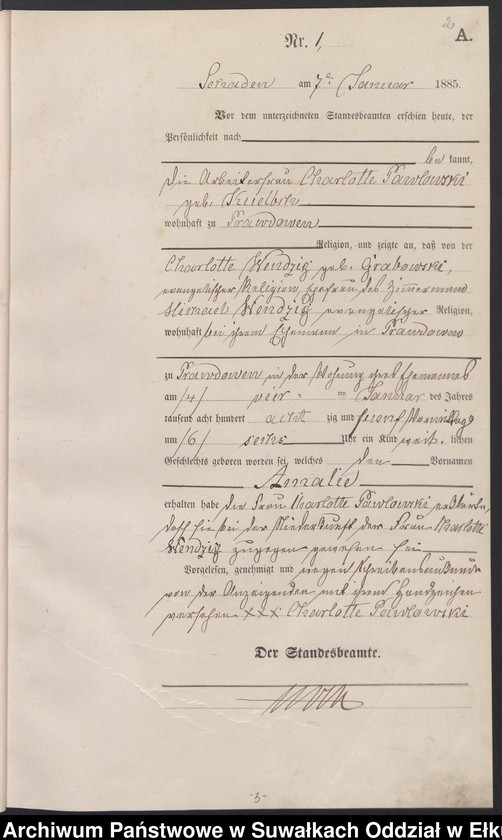 2
A.
Nr. 1.
am 7ten Januar 1885.
Vor dem unterzeichneten Standesbeamten erschien heute, der
Persönlichkeit nach
bekannt,
die Arbeiterfrau Charlotte Pawlowski
geb.
wohnhaft zu Prawdowen
Religion, und zeigte an, daß von der
Charlotte Wendzig geb. Grabowski,
evangelischer Religion, Ehefrau des
Wendzig evangelischer Religion,
wohnhaft bei ihrem Ehemann in Prawdowen
zu Prawdowen in der Wohnung ihres Ehemannes
am /4/ vier ten Januar des Jahres
tausend acht hundert acht zig und fuenf Vormittags
um /6/ sechs Uhr ein Kind weib- lichen
Geschlechts geboren worden sei, welches den Vornamen
Amalie
erhalten habe die Frau Charlotte Pawlowski erklärte,
daß sie bei der Niederkunft der Frau Charlotte
Wendzig zugegen gewesen sei
Vorgelesen, genehmigt und wegen Schreibensunkunde
von der Anzeigenden mit ihrem Handzeichen
versehen XXX Charlotte Pawlowski
Der Standesbeamte.
-3-
Archiwum Państwowe w Suwałkach Oddział w Ełku